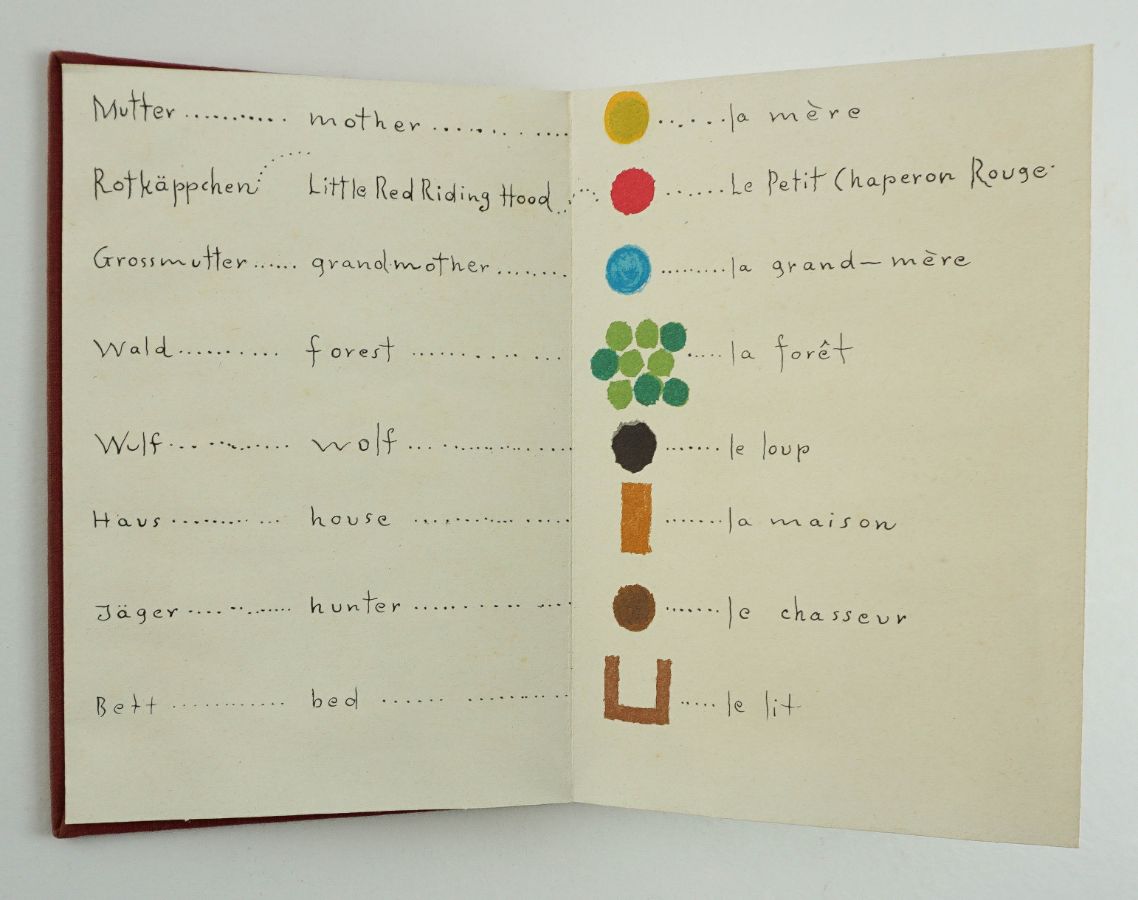 Mutter ........... mother ............ ...... la mère
Rotkäppchen ........ Little Red Riding Hood ........ ...... Le Petit Chaperon Rouge
Grossmutter ...... grandmother ........ ......... la grand-mère
Wald .......... forest ............ ..... la forêt
Wulf ........... wolf ............... ....... le loup
Haus ........... house ............... ....... la maison
Jäger ............ hunter ............. ....... le chasseur
Bett ............ bed ............... ..... le lit